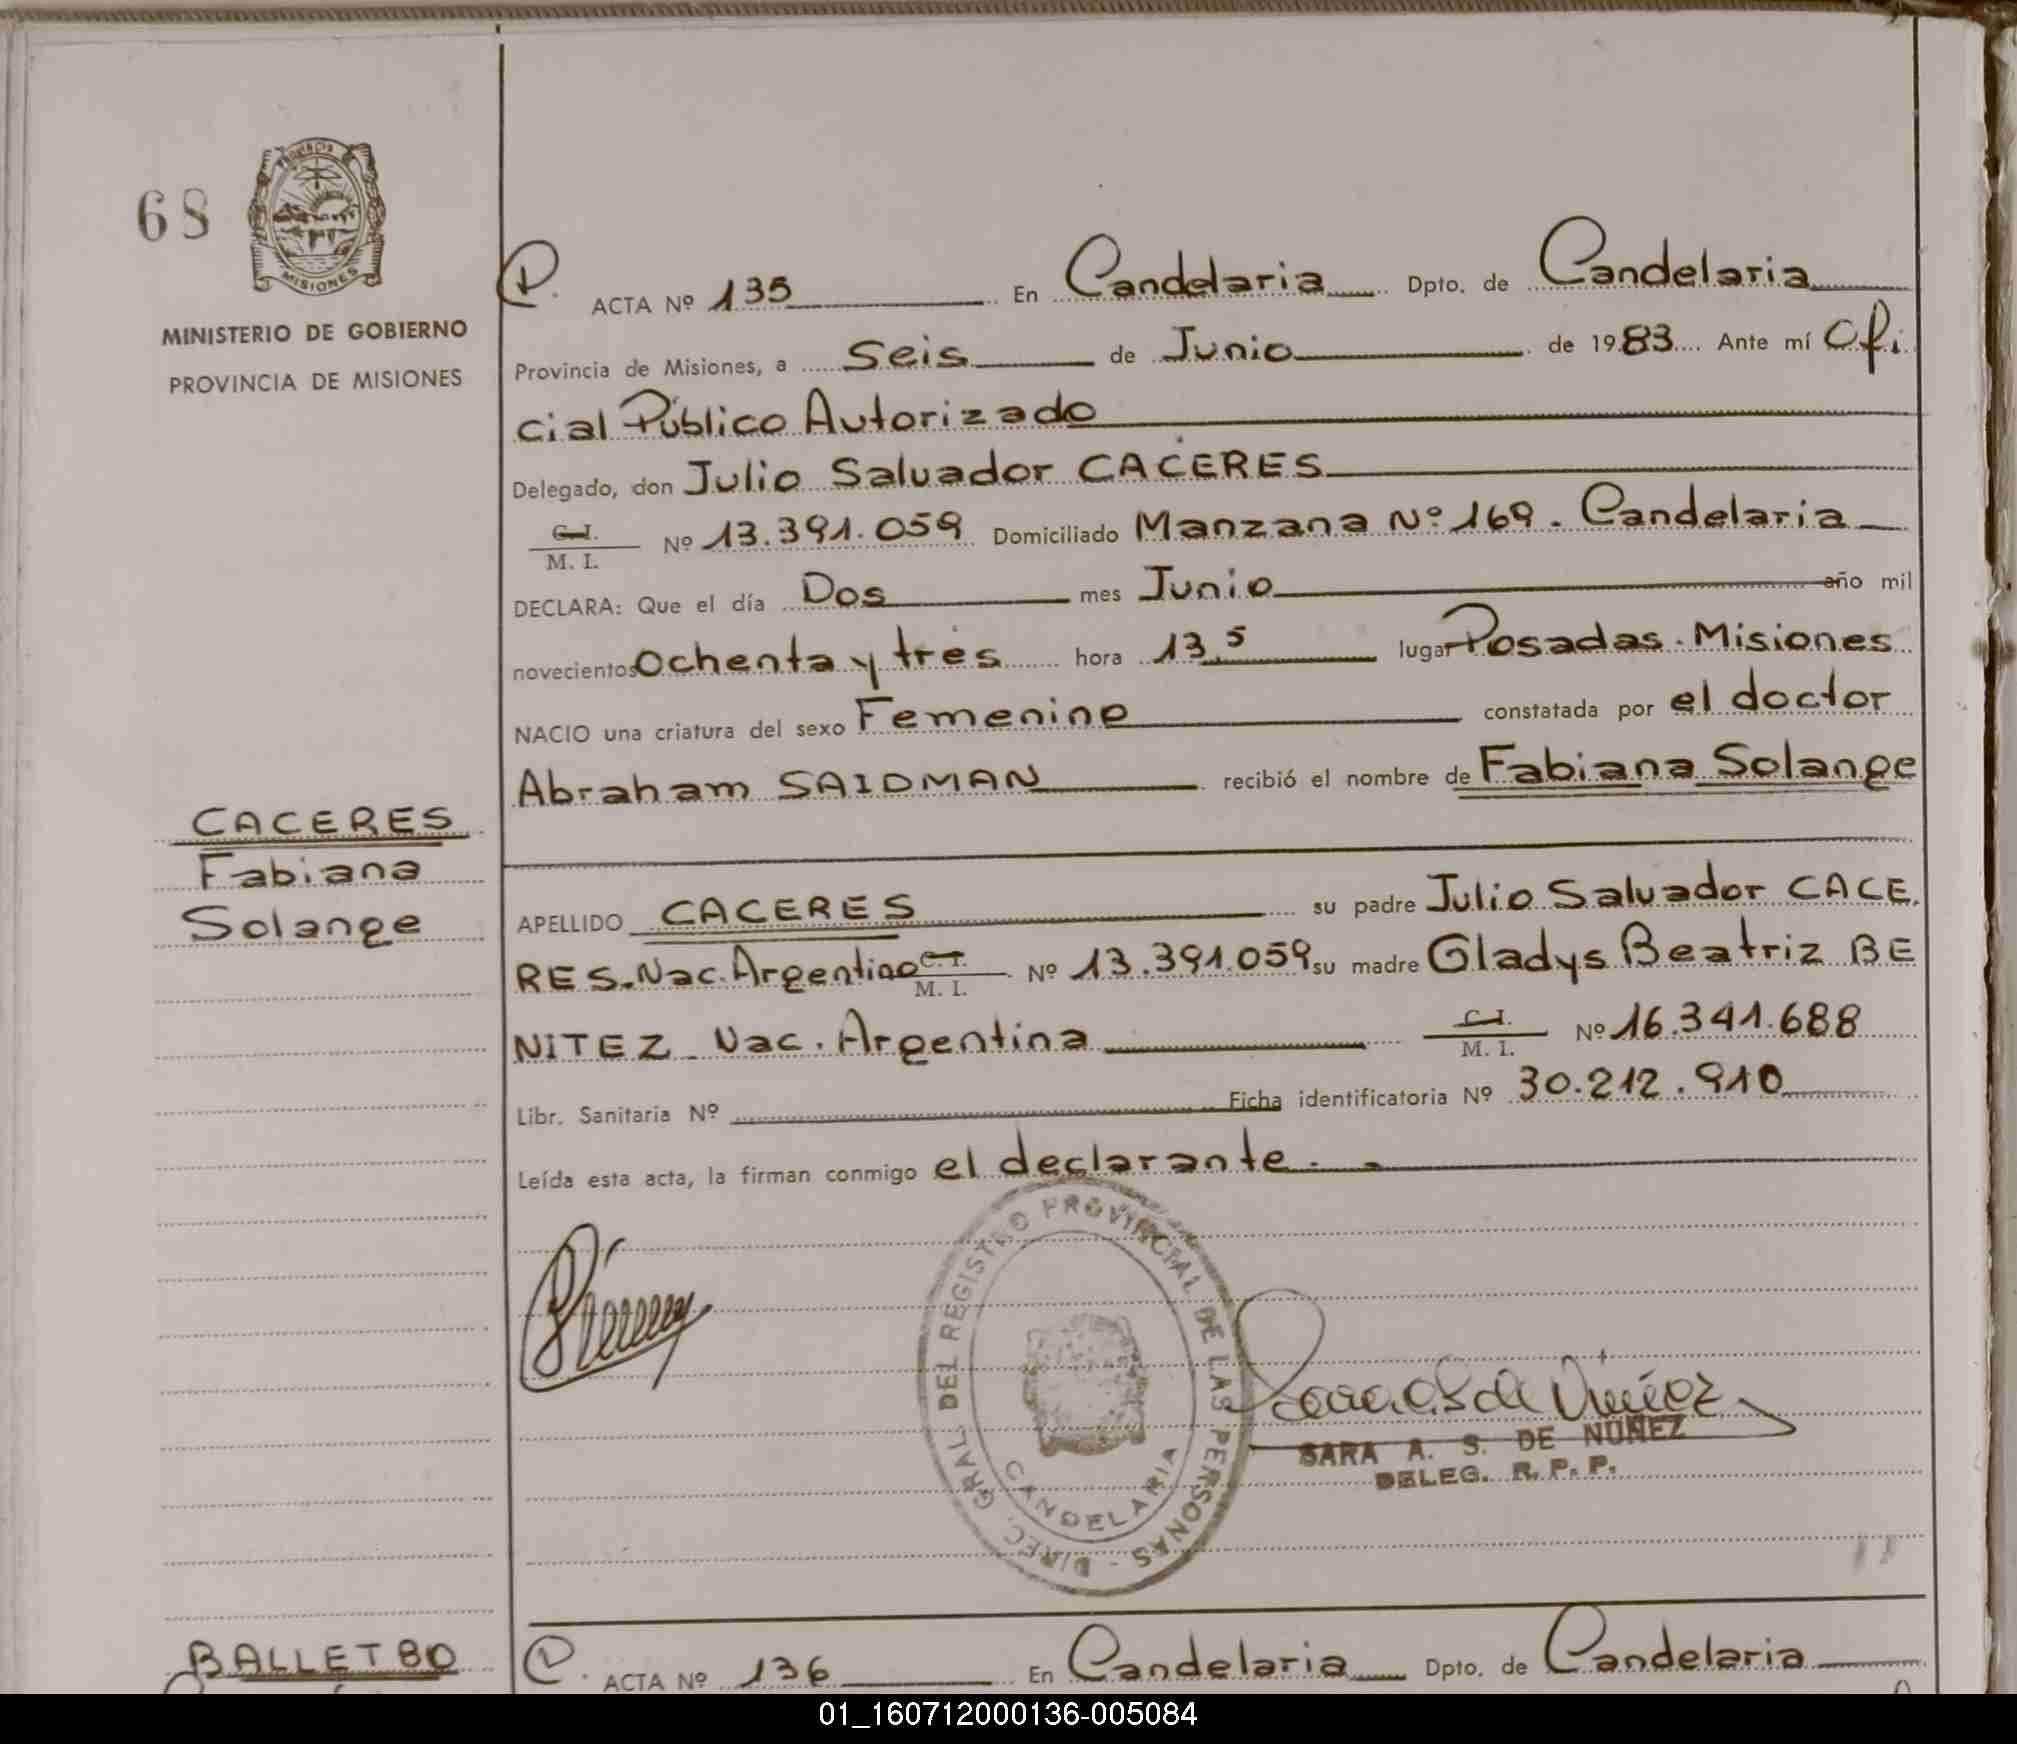 68
PROVINCIA
MISIONES
MINISTERIO DE GOBIERNO
PROVINCIA DE MISIONES
ACTA Nº 135 En Candelaria Dpto. de Candelaria
Provincia de Misiones, a Seis de Junio de 1983 Ante mí Ofi
cial Público Autorizado
Delegado, don Julio Salvador CACERES
C. I.
M. I. Nº 13.391.059 Domiciliado Manzana Nº 169. Candelaria
DECLARA: Que el día Dos mes Junio año mil
novecientos Ochenta y tres hora 13,5 lugar Posadas. Misiones
NACIO una criatura del sexo Femenino constatada por el doctor
Abraham SAIDMAN recibió el nombre de Fabiana Solange
CACERES
Fabiana
Solange
APELLIDO CACERES su padre Julio Salvador CACE
RES. Nac. Argentino C. I. M. I. Nº 13.391.059 su madre Gladys Beatriz BE
NITEZ Nac. Argentina C. I. M. I. Nº 16.341.688
Libr. Sanitaria Nº Ficha identificatoria Nº 30.212.910
Leída esta acta, la firman conmigo el declarante.
DIREC. GRAL. DEL REGISTRO PROVINCIAL DE LAS PERSONAS -
CANDELARIA
SARA A. S. DE NUÑEZ
DELEG. R. P. P.
BALLETBO
ACTA Nº 136 En Candelaria Dpto. de Candelaria
01_160712000136-005084